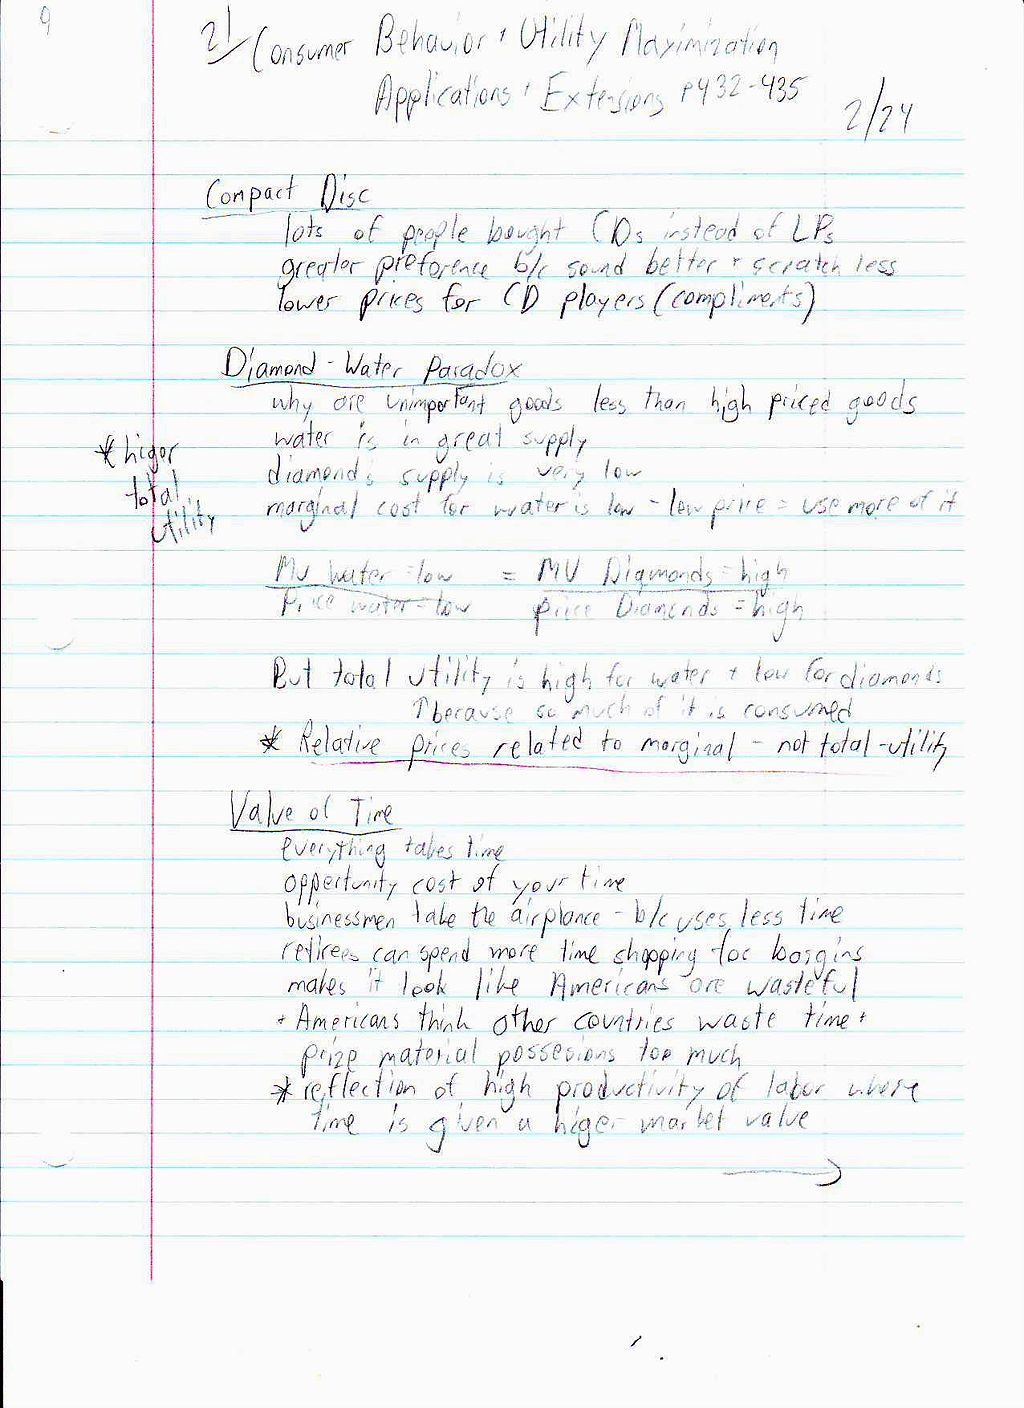 9
21 Consumer Behavior + Utility Maximization
Applications + Extensions p432-435
2/24
Compact Disc
lots of people bought CDs instead of LPs
greater preference b/c sound better + scratch less
lower prices for CD players (compliments)
Diamond-Water Paradox
why are unimportant goods less than high priced goods
water is in great supply
* higer
total
utility
diamonds supply is very low
marginal cost for water is low - low price = use more of it
MU water = low = MU Diamonds = high
Price water = low price Diamonds = high
But total utility is high for water + low for diamonds
↑ because so much of it is consumed
* Relative prices related to marginal - not total - utility
Value of Time
everything takes time
opportunity cost of your time
businessmen take the airplance - b/c uses less time
retirees can spend more time shopping for bargins
makes it look like Americans are wasteful
+ Americans think other countries waste time +
prize material possesions too much
* reflection of high productivity of labor where
time is given a higer market value
→